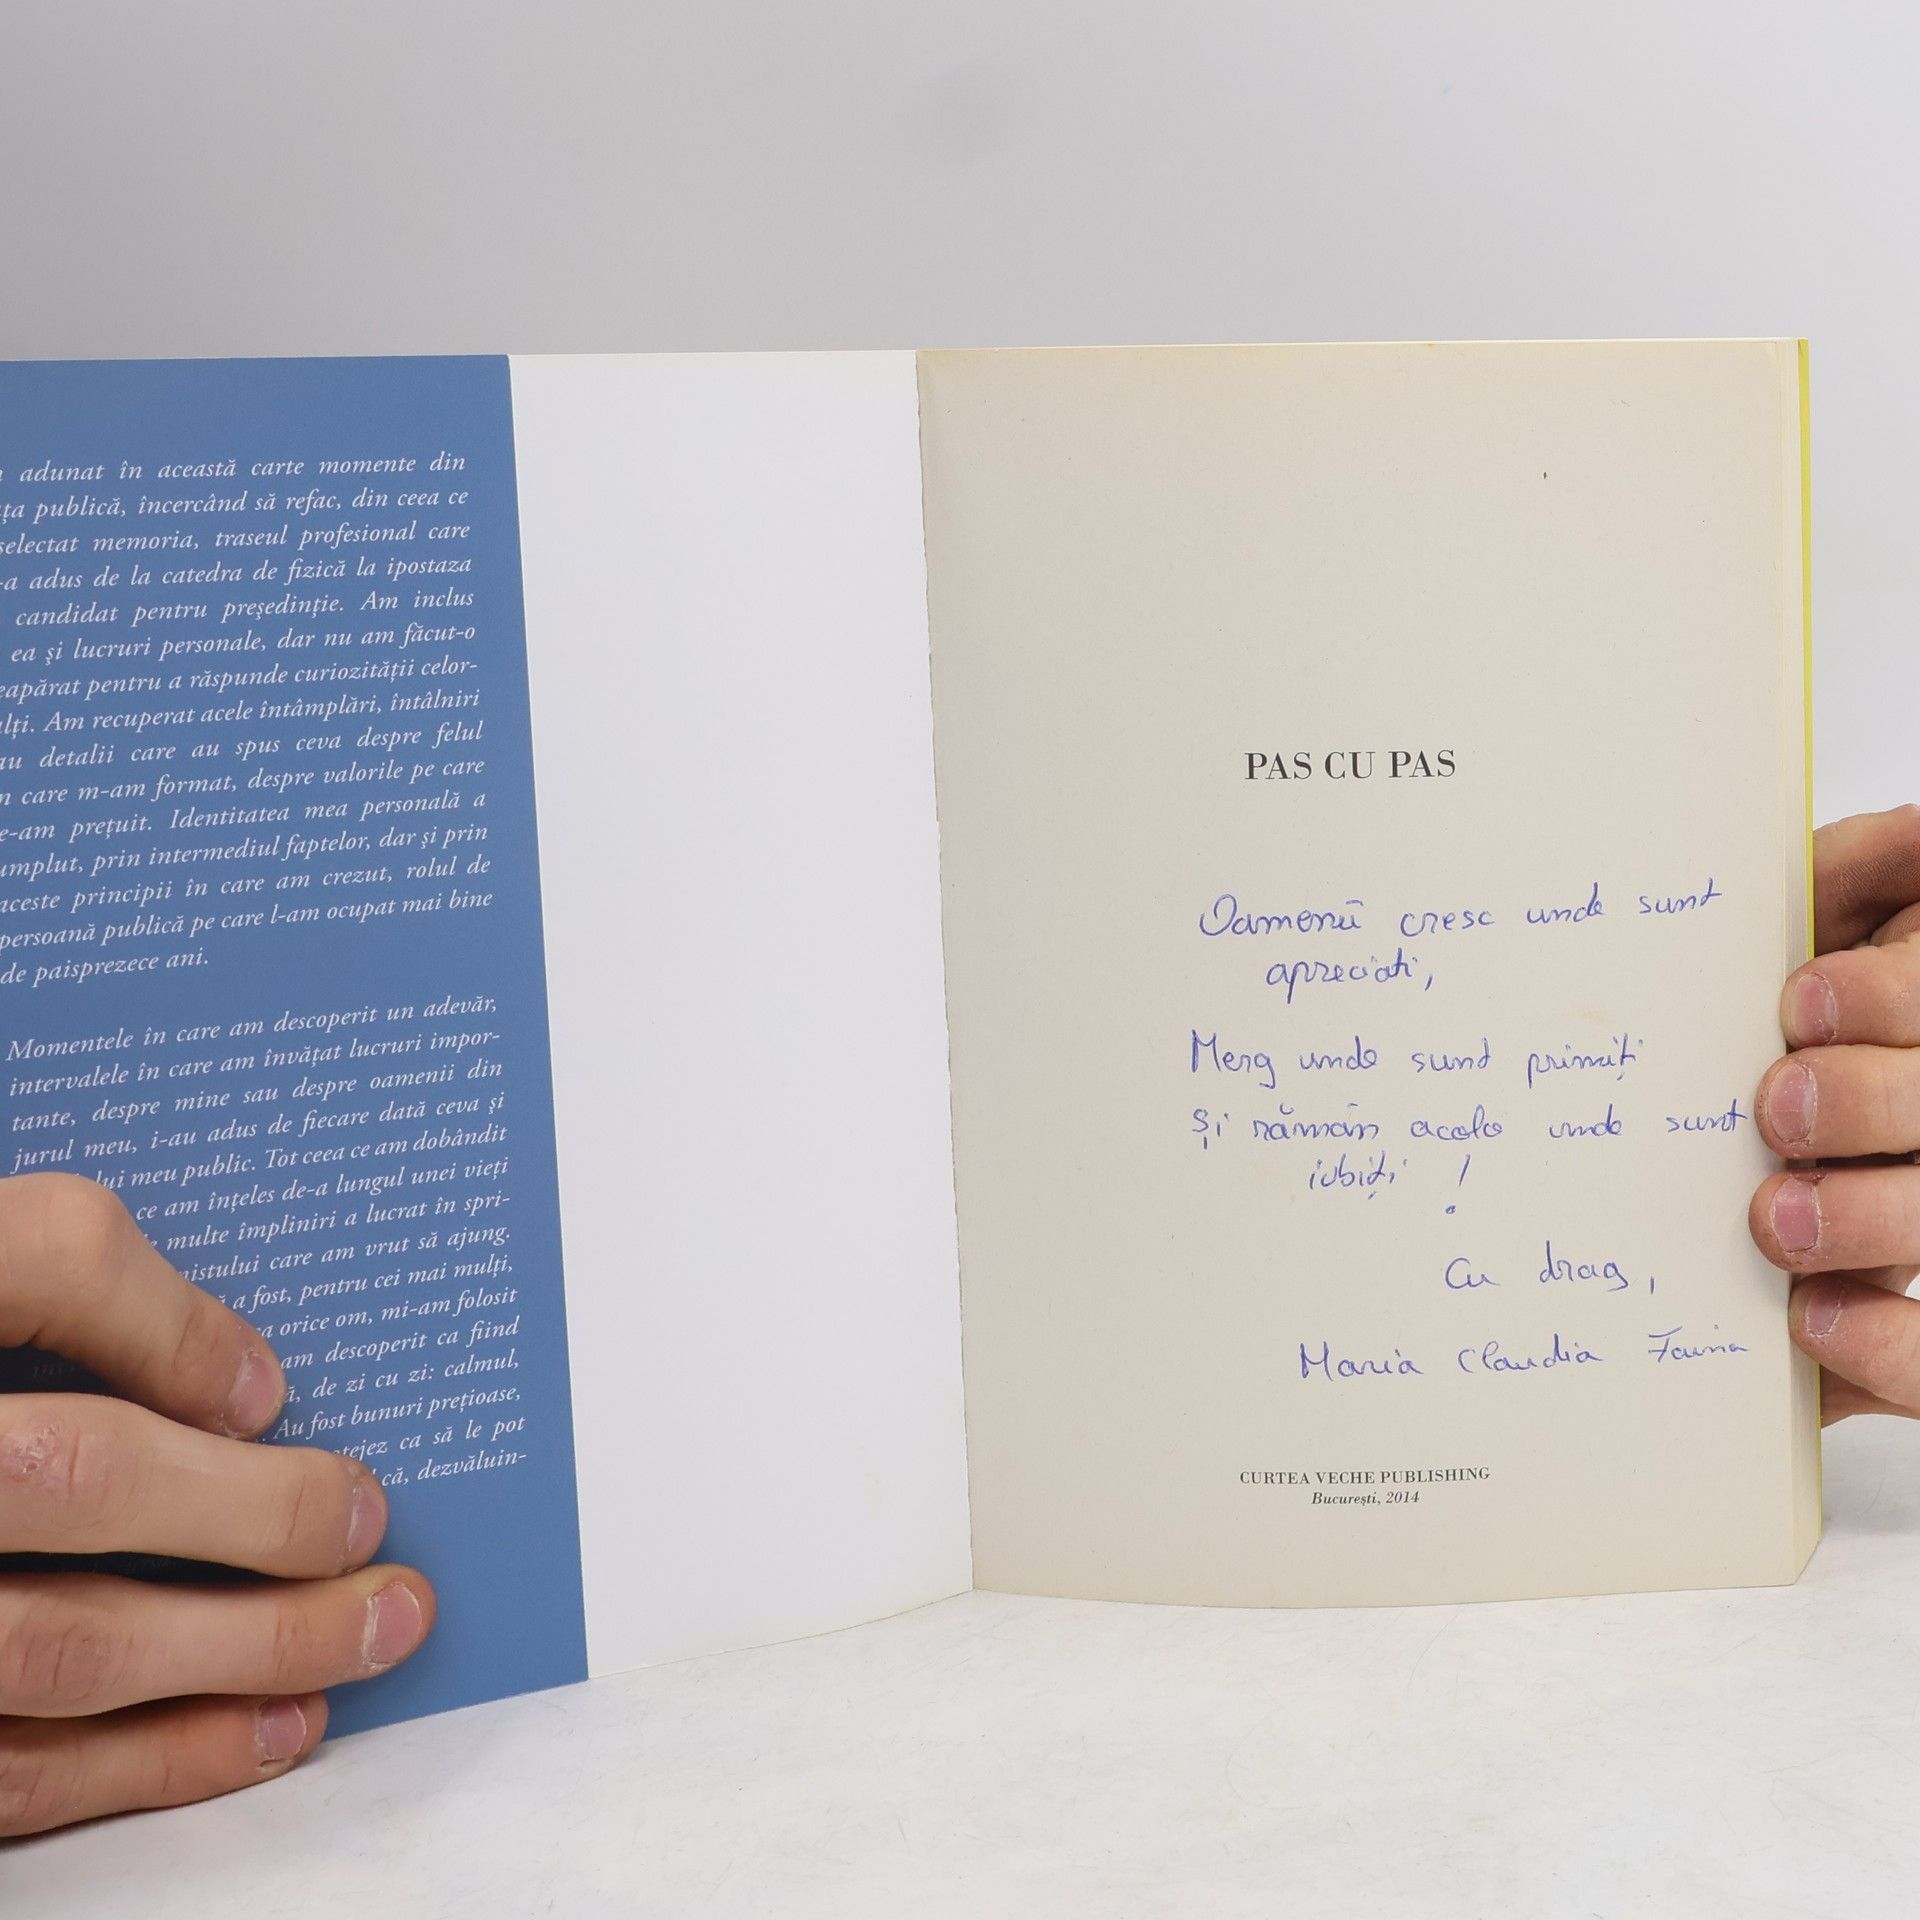 adunat în această carte momente din
publică, încercând să refac, din ceea ce
selectat memoria, traseul profesional care
adus de la catedra de fizică la ipostaza
candidat pentru preşedinţie. Am inclus
ea şi lucruri personale, dar nu am făcut-o
pentru a răspunde curiozităţii celor-
Am recuperat acele întâmplări, întâlniri
detalii care au spus ceva despre felul
care m-am format, despre valorile pe care
preţuit. Identitatea mea personală a
umplut, prin intermediul faptelor, dar şi prin
aceste principii în care am crezut, rolul de
persoană publică pe care l-am ocupat mai bine
de paisprezece ani.
Momentele în care am descoperit un adevăr,
intervalele în care am învăţat lucruri impor-
tante, despre mine sau despre oamenii din
jurul meu, i-au adus de fiecare dată ceva şi
lui meu public. Tot ceea ce am dobândit
ce am înţeles de-a lungul unei vieţi
multe împliniri a lucrat în spri-
care am vrut să ajung.
a fost, pentru cei mai mulţi,
orice om, mi-am folosit
am descoperit ca fiind
de zi cu zi: calmul,
Au fost bunuri preţioase,
ca să le pot
că, dezvăluin-
PAS CU PAS
Oamenii cresc unde sunt
apreciati,
Merg unde sunt primiți
Și rămân acolo unde sunt
iubiți !
Cu drag,
Maria Claudia
CURTEA VECHE PUBLISHING
Bucureşti, 2014